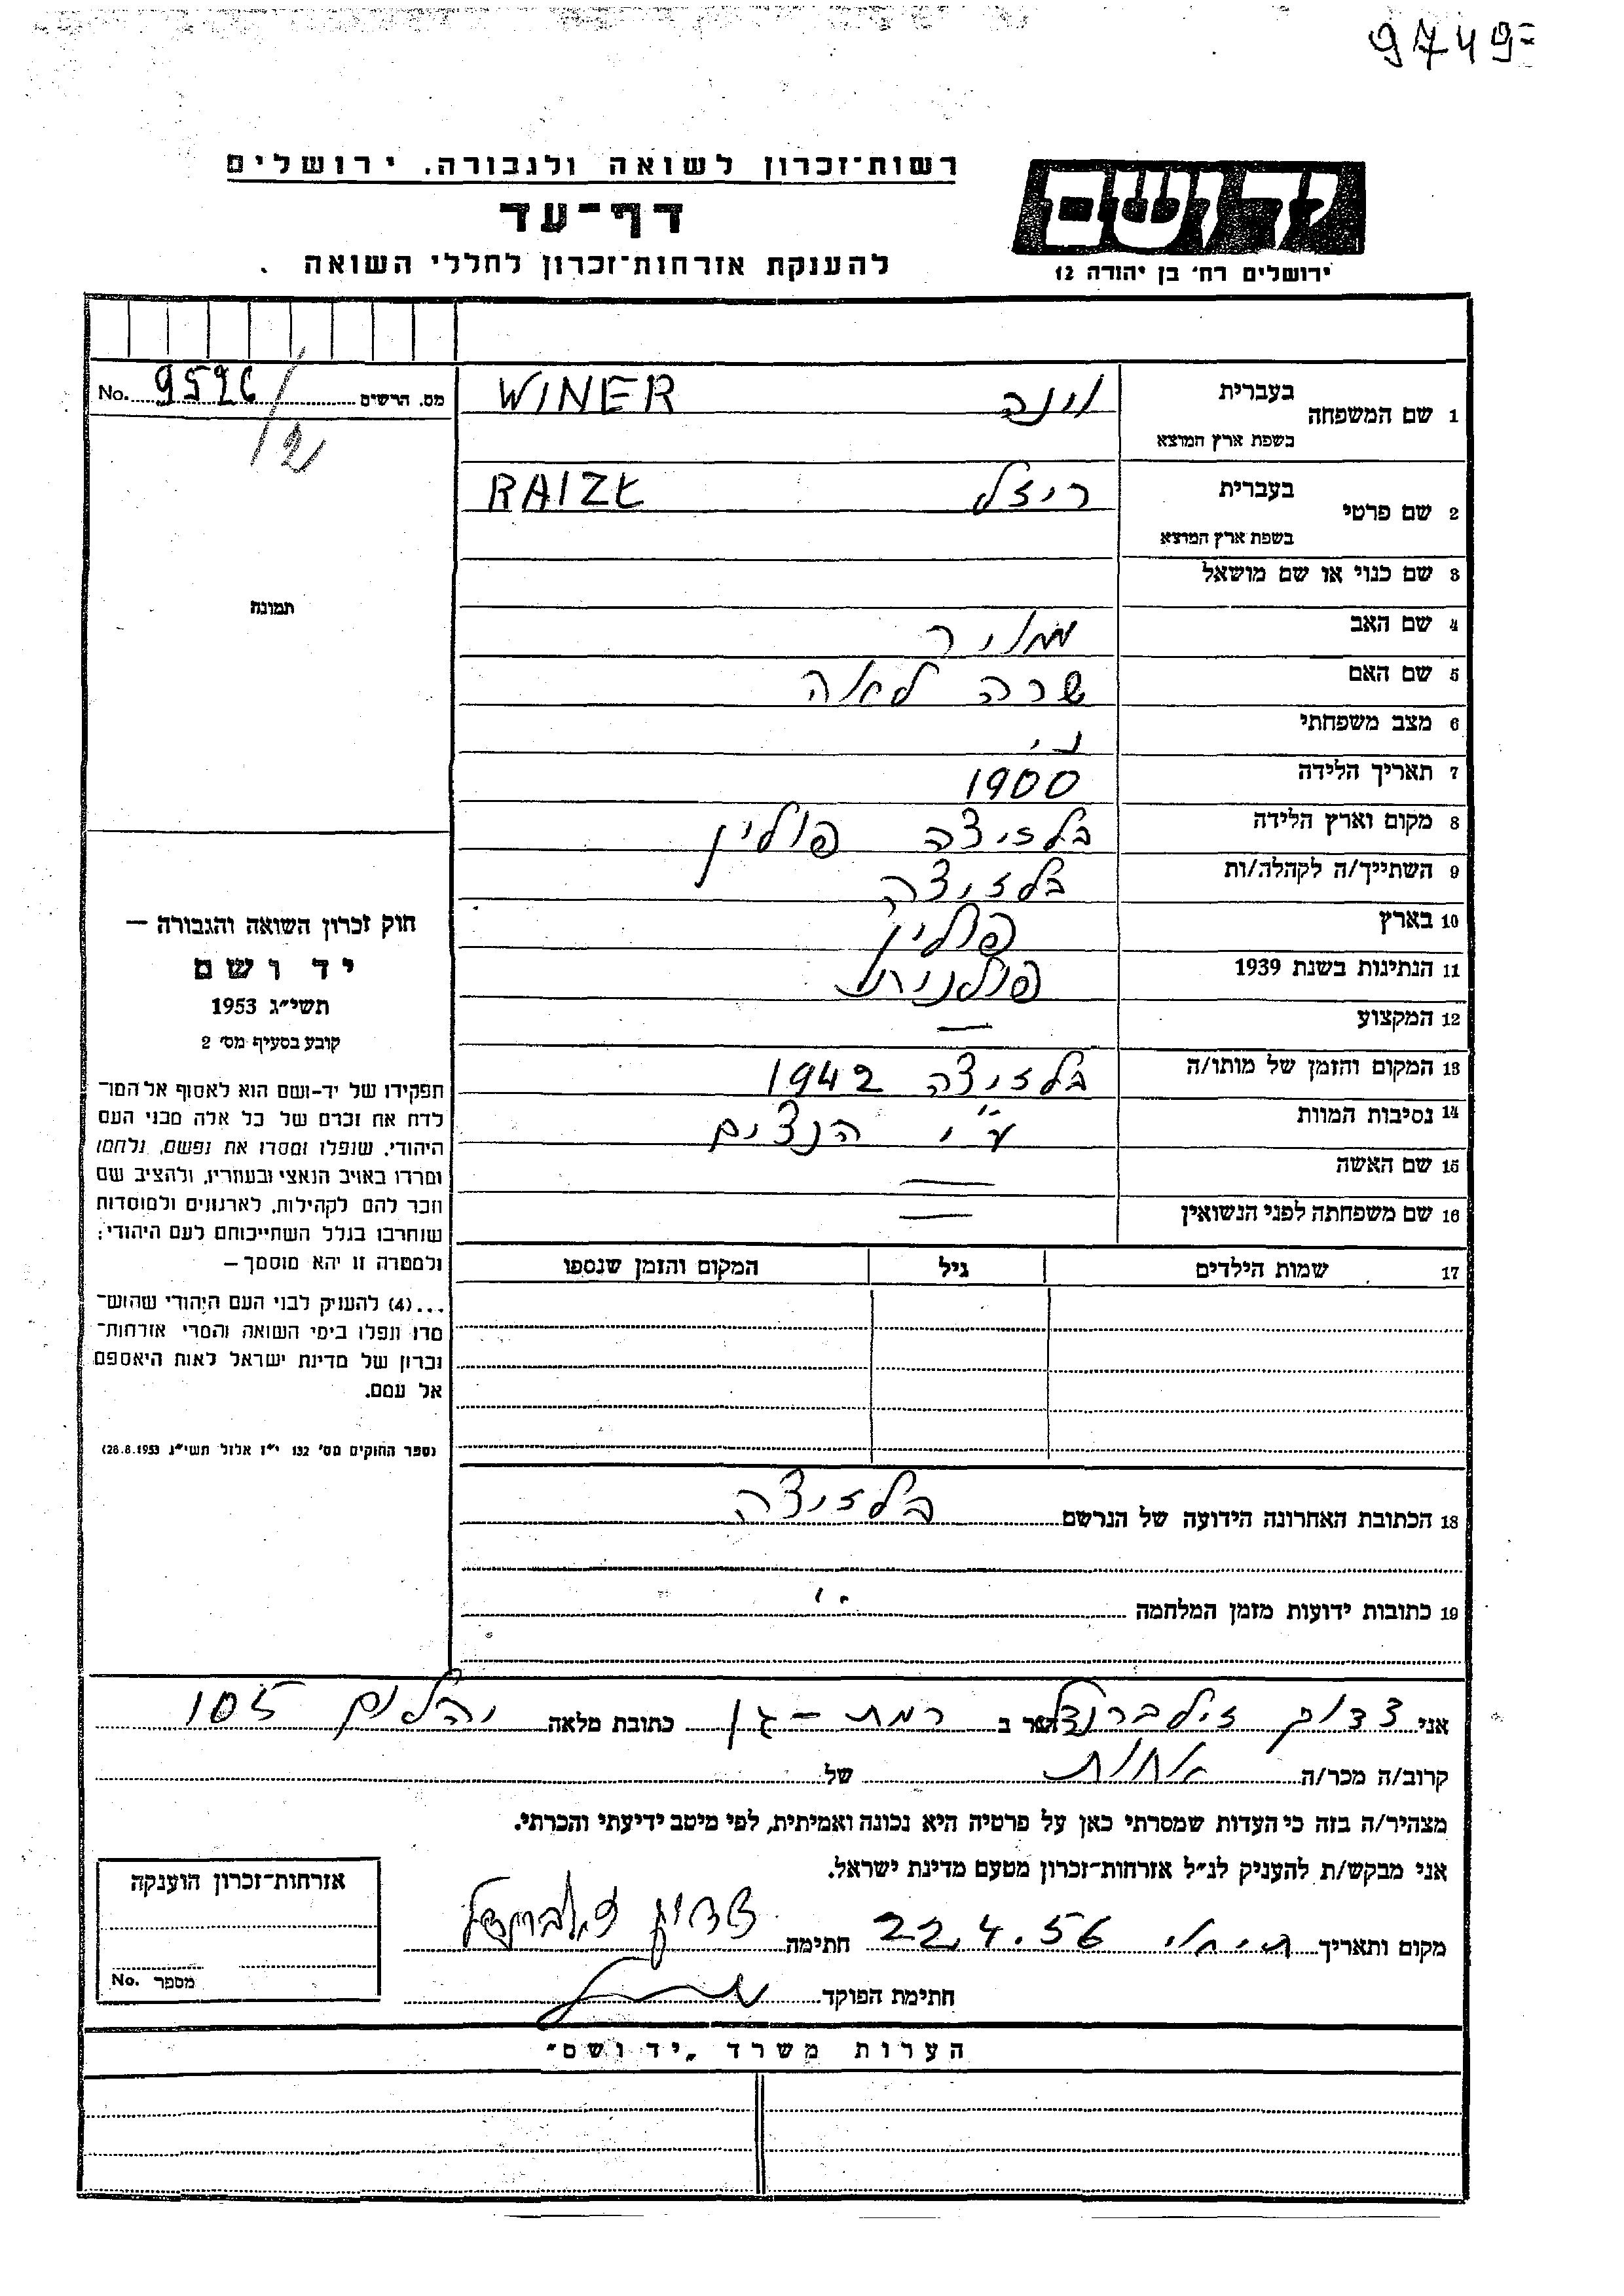 9749-
רשות־זכרון לשואה ולגבורה. ירושלים
דף־עד
להענקת אזרחות־זכרון לחללי השואה
יד ושם
ירושלים רח׳ בן יהודה 12
No. 9526 מס. הרשים
1 שם המשפחה בעברית וינר WINER
בשפת ארץ המוצא
2 שם פרטי בעברית ריזל RAIZŁ
בשפת ארץ המוצא
3 שם כנוי או שם מושאל
4 שם האב מאיר
5 שם האם שרה לאה
6 מצב משפחתי
7 תאריך הלידה 1900
8 מקום וארץ הלידה בלזיצה פולין
9 השתייך/ה לקהלה/ות בלזיצה
10 בארץ פולין
11 הנתינות בשנת 1939 פולנית
12 המקצוע —
13 המקום והזמן של מותו/ה בלזיצה 1942
14 נסיבות המוות ע״י הנצים
15 שם האשה —
16 שם משפחתה לפני הנשואין —
17 שמות הילדים גיל המקום והזמן שנספו
18 הכתובת האחרונה הידועה של הנרשם בלזיצה
19 כתובות ידועות מזמן המלחמה "
תמונה
חוק זכרון השואה והגבורה —
יד ושם
תשי״ג 1953
קובע בסעיף מס׳ 2
תפקידו של יד-ושם הוא לאסוף אל המו־
לדת את זכרם של כל אלה מבני העם
היהודי, שנפלו ומסרו את נפשם, נלחמו
ומרדו באויב הנאצי ובעוזריו, ולהציב שם
וזכר להם לקהילות, לארגונים ולמוסדות
שנחרבו בגלל השתייכותם לעם היהודי;
ולמטרה זו יהא מוסמך —
...(4) להעניק לבני העם היהודי שהוש־
מדו ונפלו בימי השואה והמרי אזרחות־
זכרון של מדינת ישראל לאות היאספם
אל עמם.
(ספר החוקים מס׳ 132 י״ז אלול תשי״ג 28.8.1953)
אני צדוק זילברנדל הגר ב רמת - גן כתובת מלאה יהלום 105
קרוב/ה מכר/ה אחות של
מצהיר/ה בזה כי העדות שמסרתי כאן על פרטיה היא נכונה ואמיתית, לפי מיטב ידיעתי והכרתי.
אני מבקש/ת להעניק לנ״ל אזרחות-זכרון מטעם מדינת ישראל.
מקום ותאריך 22.4.56 חתימה
חתימת הפוקד
אזרחות־זכרון הוענקה
מספר No.
הערות משרד „יד ושם״